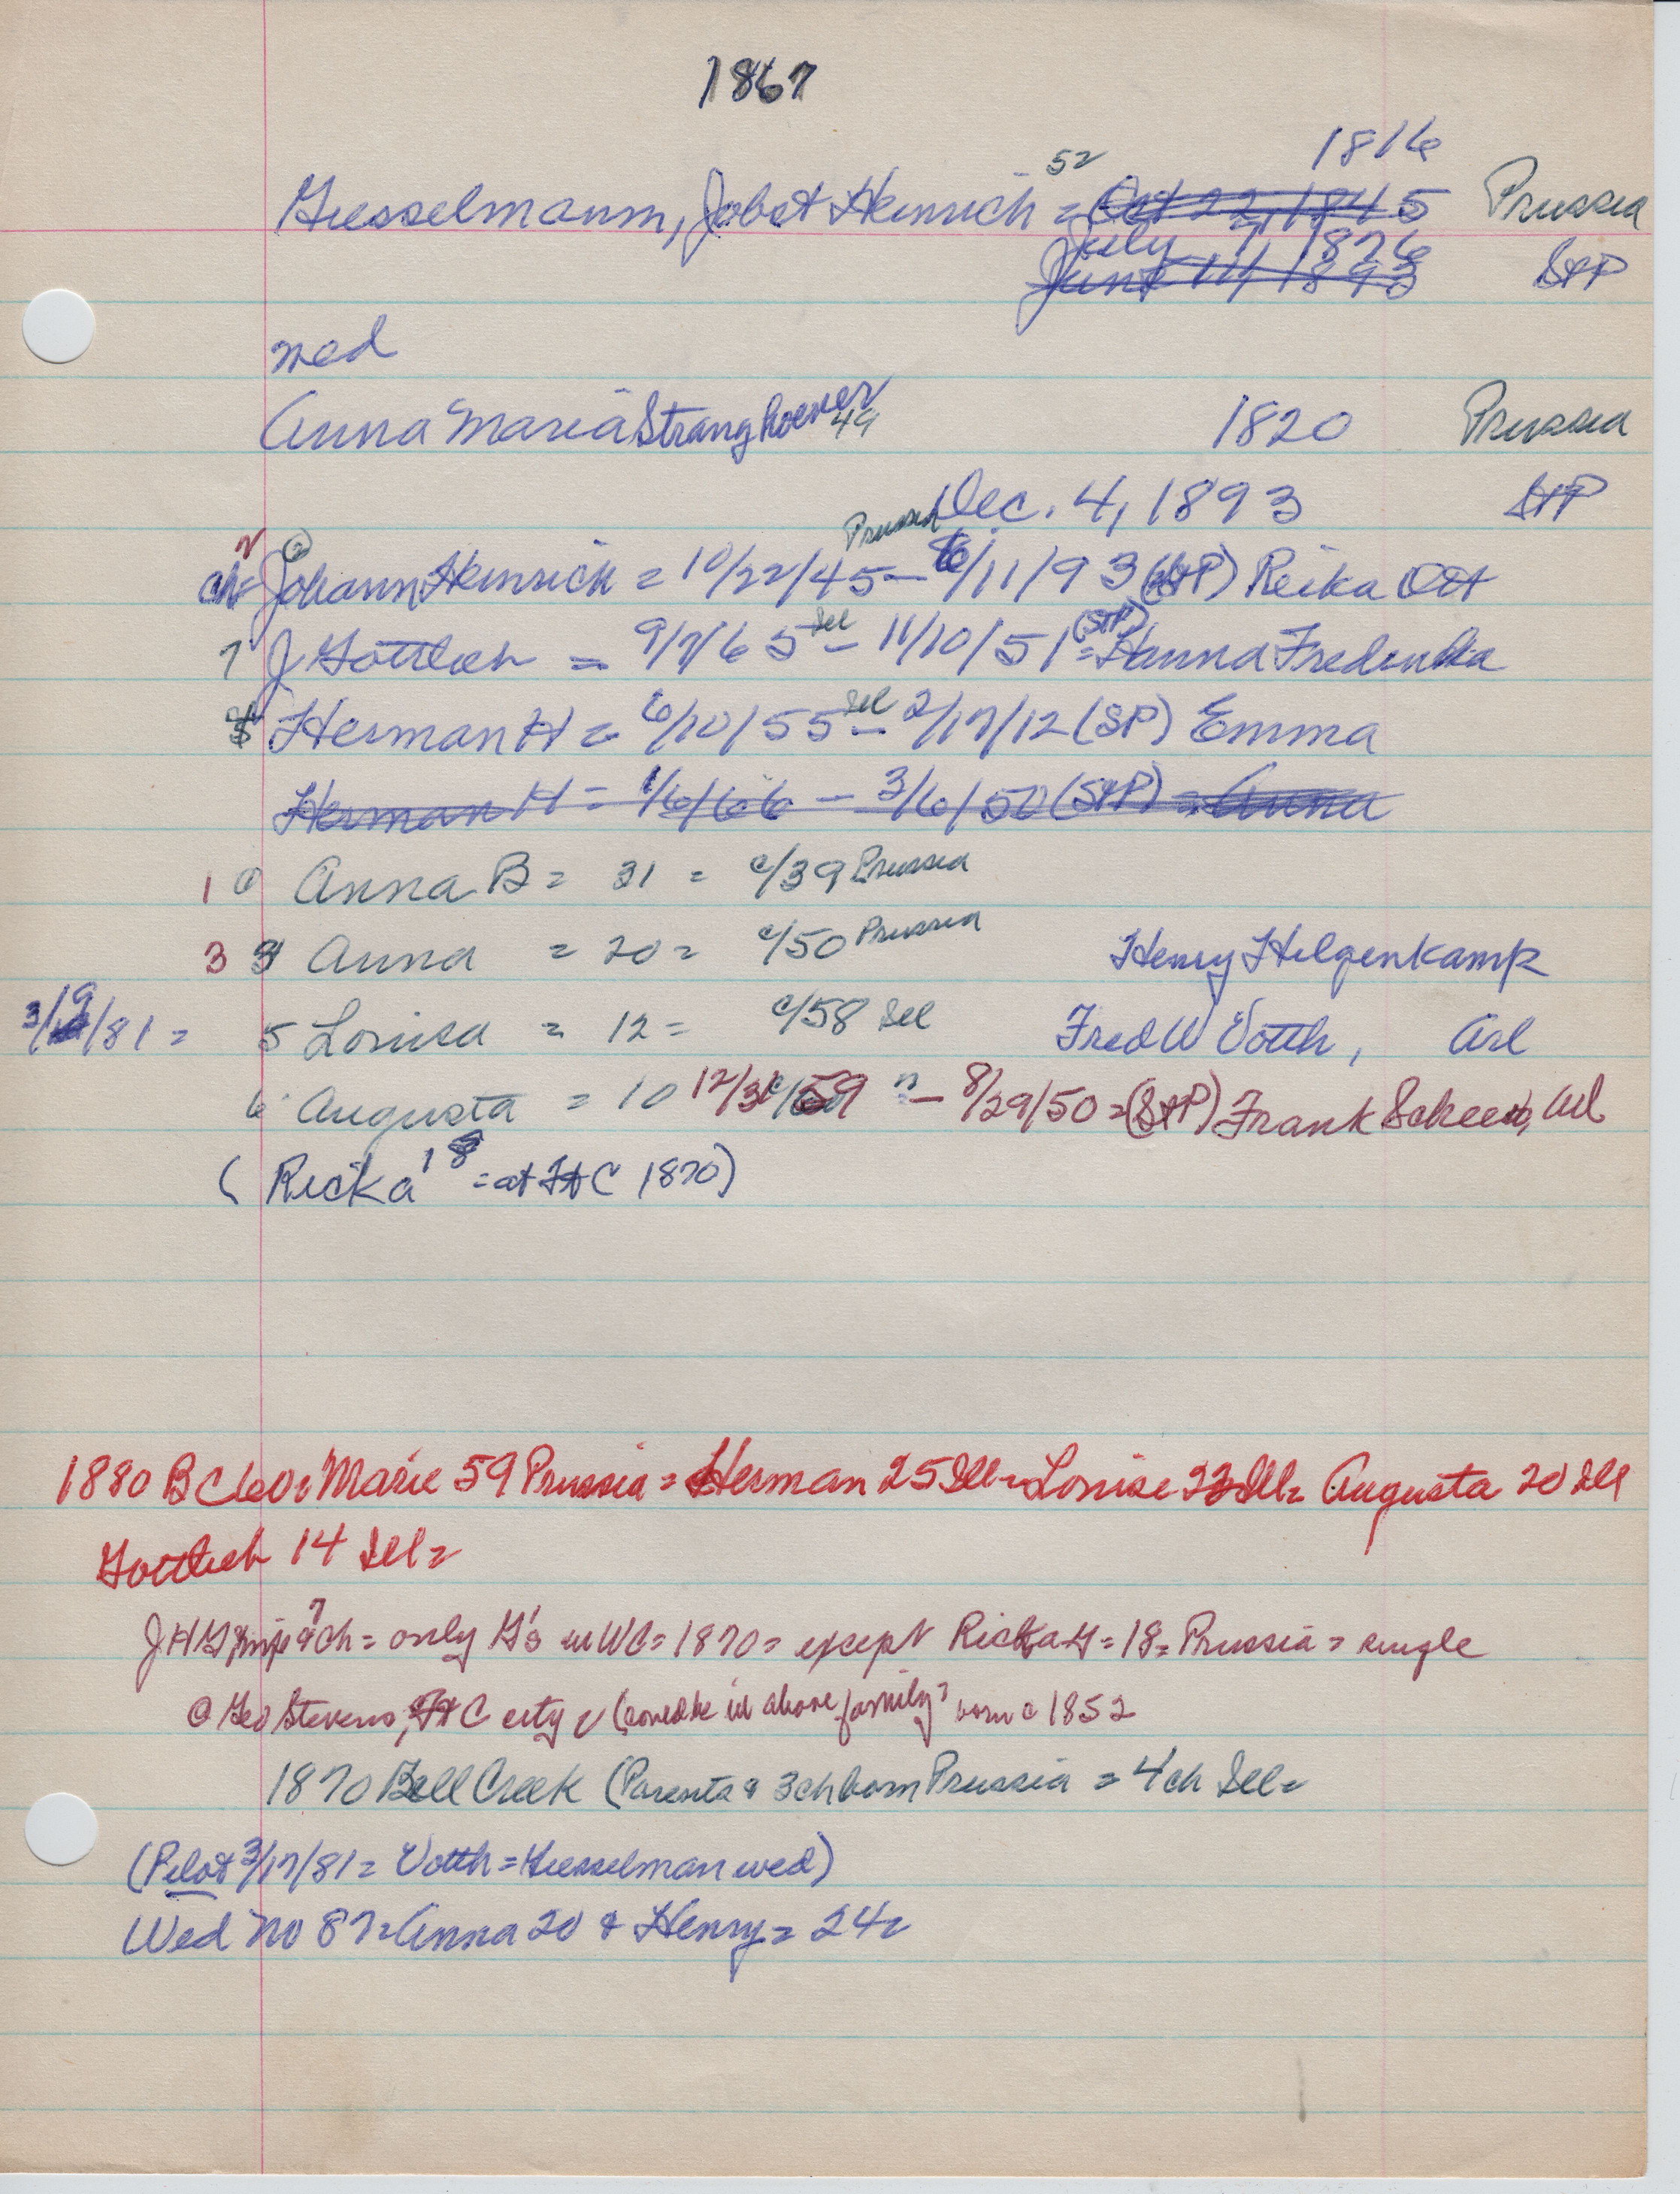 1867
52 1816
Giesselmann, Jobst Heinrich = Oct 22, 1845 Prussia
July 7, 1876
June 11, 1893 StP
med
Anna Maria Stranghoener 49 1820 Prussia
Dec. 4, 1893 StP
Prussia
2
ch= Johann Heinrich = 10/22/45 - 6/11/93 (StP) Reika Ott
7 J Gottlieb = 9/7/65 Ill - 11/10/51 (StP) = Hanna Fredericka
4 Herman H = 6/10/55 Ill - 2/17/12 (SP) Emma
Herman H = 1/6/66 - 3/6/50 (StP) = Anna
1 Anna B = 31 = c/39 Prussia
3 3 Anna = 20 = c/50 Prussia Henry Hilgenkamp
3/19/81 = 5 Louisa = 12 = c/58 Ill Fred W Votth, Arl
6 Augusta = 10 12/31/59 " - 8/29/50 = (StP) Frank Scheer, Arl
(Ricka 18 = at Ft C 1870)
1880 BC 60: Marie 59 Prussia = Herman 25 Ill = Louise 22 Ill = Augusta 20 Ill
Gottlieb 14 Ill =
JHG & 7 ch = only G's in WC = 1870 = except Ricka G = 18 = Prussia = single
@ Geo Stevens, Ft C city = (could be in above family? born c 1852
1870 Bell Creek (Parents & 3 ch born Prussia = 4 ch Ill =
(Pilot 3/17/81 = Votth = Giesselman wed)
Wed no 87 = Anna 20 & Henry = 24 =